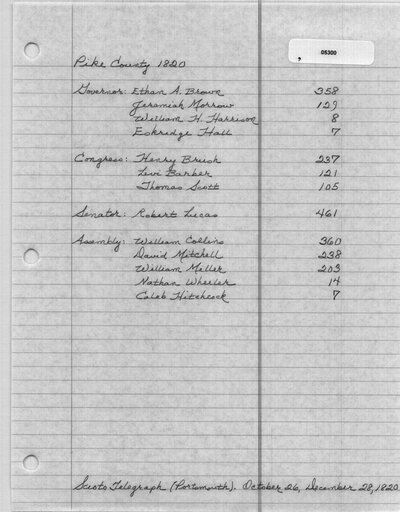 05300
,
Pike County 1820
Governor: Ethan A. Brown 358
Jeremiah Morrow 129
William H. Harrison 8
Eskredge Hall 7
Congress: Henry Brush 237
Levi Barber 121
Thomas Scott 105
Senator: Robert Lucas 461
Assembly: William Collins 360
David Mitchell 238
William Miller 203
Nathan Wheeler 14
Caleb Hitchcock 7
Scioto Telegraph (Portsmouth). October 26, December 28, 1820